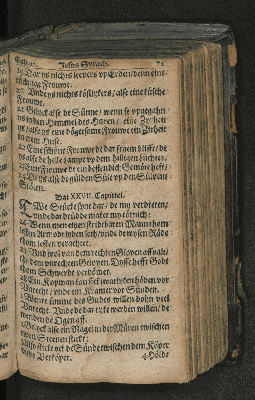 Cap. 27. Jesus Syrach. 71
19 Dar ys nichts levers up Erden / denn eine
tüchtige Frouwe.
20 Unde ys nichts köstlykers / alse eine küsche
Frouwe.
21 Gelyck alse de Sünne / wenn se upgegahn
ys in den Hemmel des Heren / eine Zyrheit
ys / also ys eine dögetsame Frouwe ein Zirheit
in erem Huse.
22 Eine schöne Frouwe de dar fraem blifft / de
ys alse de helle Lampe up dem hilligen Lüchter.
23 Eine Frouwe de ein bestendich Gemöte hefft /
24 De ys alse de gülden Süle up den Sülvern
Stölen.
Dat XXVII. Capittel.
Twe Stücke sint dar / de my verdreten /
unde dat drüdde maket my törnich:
2 Wenn men einen stridtbaren Mann
lesten Armodt lyden leth / unde de wysen Räde
thom lesten verachtet.
3 Und wol van dem rechten Geloven affvalt
tho dem unrechten Geloven / Dysse hefft Godt
thom Schwerde verdömet.
Ein Kopman kan sick swarlyken höden vor
Unrecht / unde ein Kramer vor Sünden.
Wente umme des Gudes willen dohn veel
Unrecht. Unde de dar ryke werden willen / de
wenden de Ogen aff.
Gelyck alse ein Nagel in der Müren twischen
twen Steenen stickt:
Also sticket ock de Sünde twischen dem Köper
unde Verköper.
4 Hölde